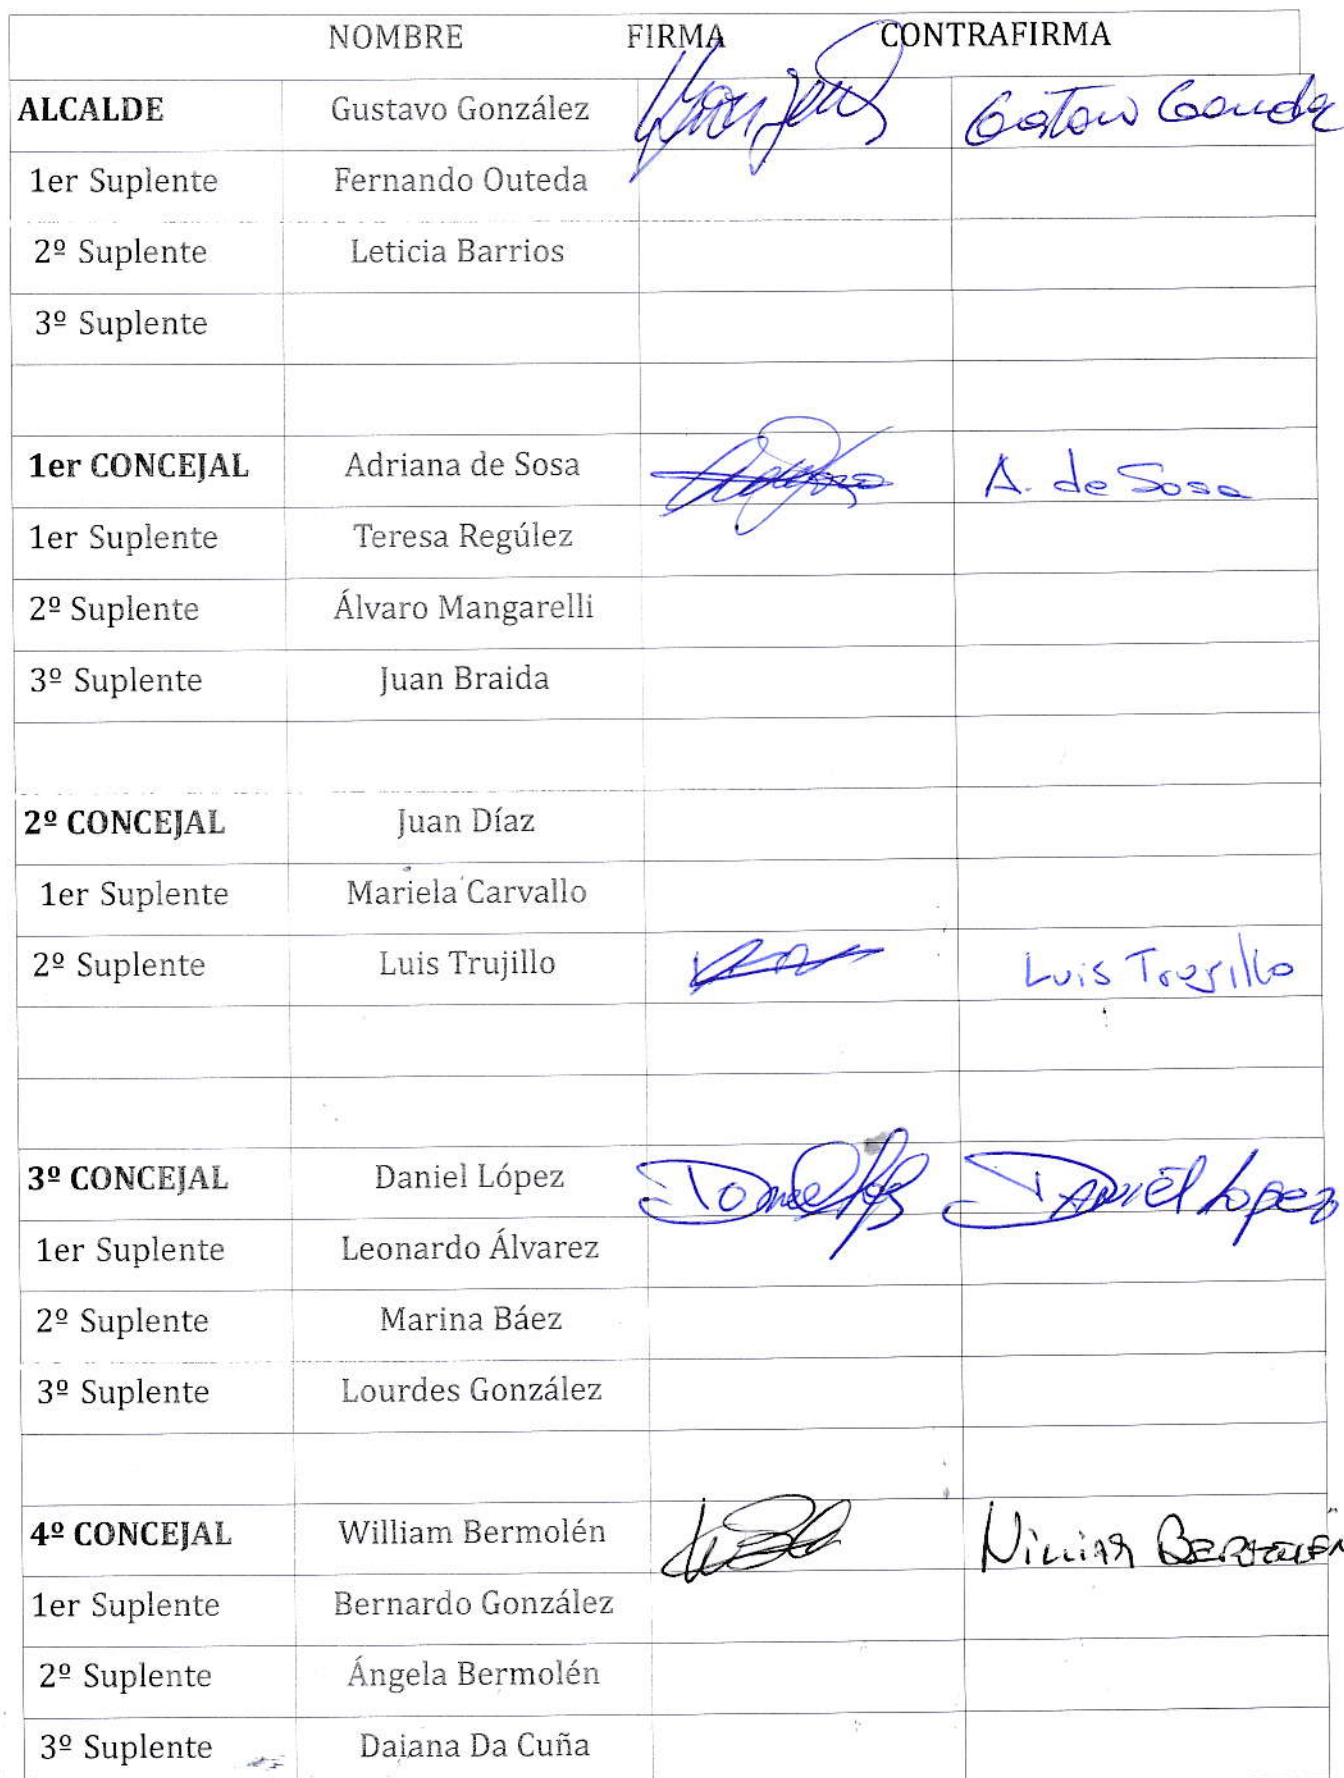 NOMBRE FIRMA CONTRAFIRMA
ALCALDE Gustavo González
1er Suplente Fernando Outeda
2º Suplente Leticia Barrios
3º Suplente
1er CONCEJAL Adriana de Sosa A. de Sosa
1er Suplente Teresa Regúlez
2º Suplente Álvaro Mangarelli
3º Suplente Juan Braida
2º CONCEJAL Juan Díaz
1er Suplente Mariela Carvallo
2º Suplente Luis Trujillo Luis Trujillo
3º CONCEJAL Daniel López Daniel Lopez
1er Suplente Leonardo Álvarez
2º Suplente Marina Báez
3º Suplente Lourdes González
4º CONCEJAL William Bermolén
1er Suplente Bernardo González
2º Suplente Ángela Bermolén
3º Suplente Daiana Da Cuña